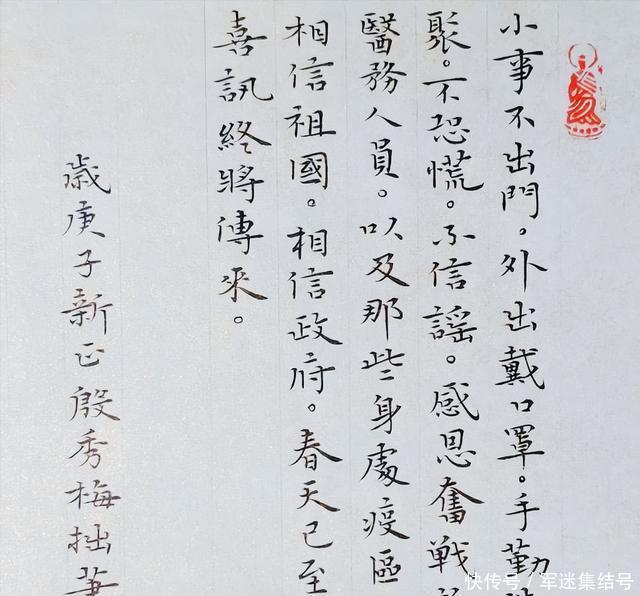 小事不出門。外出戴口罩。手勤
聚。不恐慌。不信謠。感恩奮戰
醫務人員。以及那些身處疫區
相信祖國。相信政府。春天已至
喜訊終將傳來。
歲庚子新正殷秀梅拙筆
快传号/军迷集结号